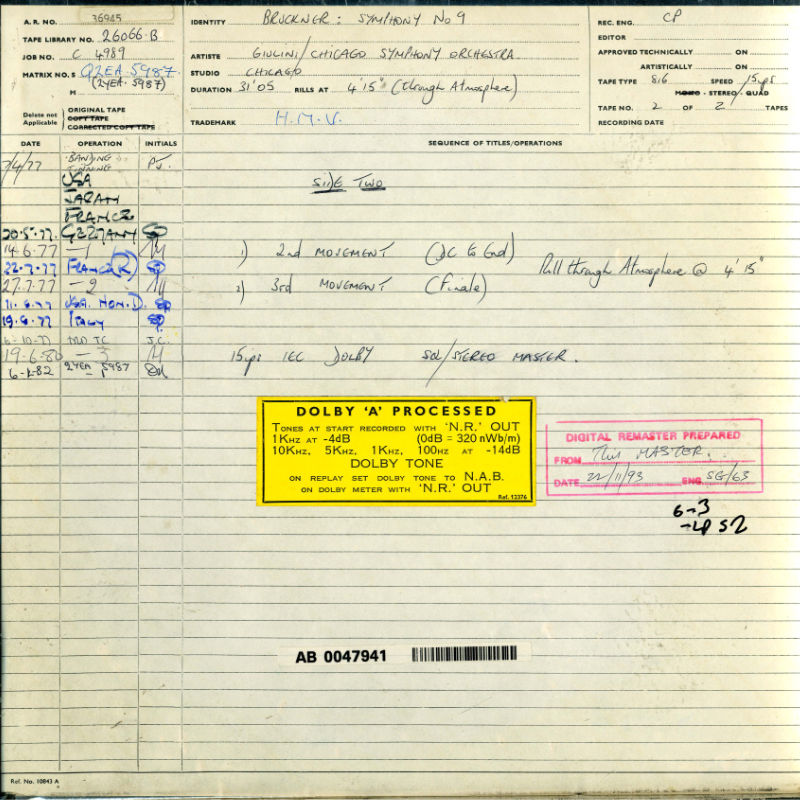 A.R. NO. 36945
TAPE LIBRARY NO. 26066-B
JOB NO. C 4989
MATRIX NO.S Q2EA 5987
(2YEA. 5987)
M
Delete not Applicable
ORIGINAL TAPE
COPY TAPE
CORRECTED COPY TAPE
IDENTITY BRUCKNER: SYMPHONY No 9
ARTISTE GIULINI/CHICAGO SYMPHONY ORCHESTRA
STUDIO CHICAGO
DURATION 31'05 RILLS AT 4'15" (through Atmosphere)
TRADEMARK H.M.V.
REC. ENG. CP
EDITOR
APPROVED TECHNICALLY ON
ARTISTICALLY ON
TAPE TYPE 816 SPEED 15ips
MONO - STEREO/QUAD
TAPE NO. 2 OF 2 TAPES
RECORDING DATE
DATE OPERATION INITIALS SEQUENCE OF TITLES/OPERATIONS
/4/77 BANDING
USA
JAPAN
FRANCE
20.5.77. GERMANY
14.6.77 -1
22.7.77 FRANCE(R)
27.7.77 -2
USA. HON.D.
19.9.77 ITALY
6-10-77 J.C.
19.6.80 -3
6-1-82 2YEA 5987
SIDE TWO
1) 2nd MOVEMENT (DC to End)
2) 3rd MOVEMENT (Finale)
Rill through Atmosphere @ 4'15"
15ips IEC DOLBY SOL/STEREO MASTER.
DOLBY 'A' PROCESSED
TONES AT START RECORDED WITH 'N.R.' OUT
1KHZ AT -4dB (0dB = 320 nWb/m)
10KHZ, 5KHZ, 1KHZ, 100HZ AT -14dB
DOLBY TONE
ON REPLAY SET DOLBY TONE TO N.A.B.
ON DOLBY METER WITH 'N.R.' OUT
Ref. 13376
DIGITAL REMASTER PREPARED
FROM This MASTER.
DATE 22/11/93 ENG. SG/63
6-3
-LP S2
AB 0047941
Ref. No. 10843 A